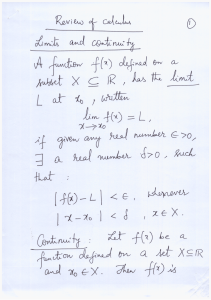 Review of calculus ①
Limits and continuity
A function f(x) defined on a
subset X ⊆ ℝ, has the limit
L at x₀, written
lim f(x) = L,
x→x₀
if given any real number ε>0,
∃ a real number δ>0, such
that :
|f(x)-L| < ε, whenever
|x-x₀| < δ, x∈X.
Continuity : Let f(x) be a
function defined on a set X⊆ℝ
and x₀∈X. Then f(x) is